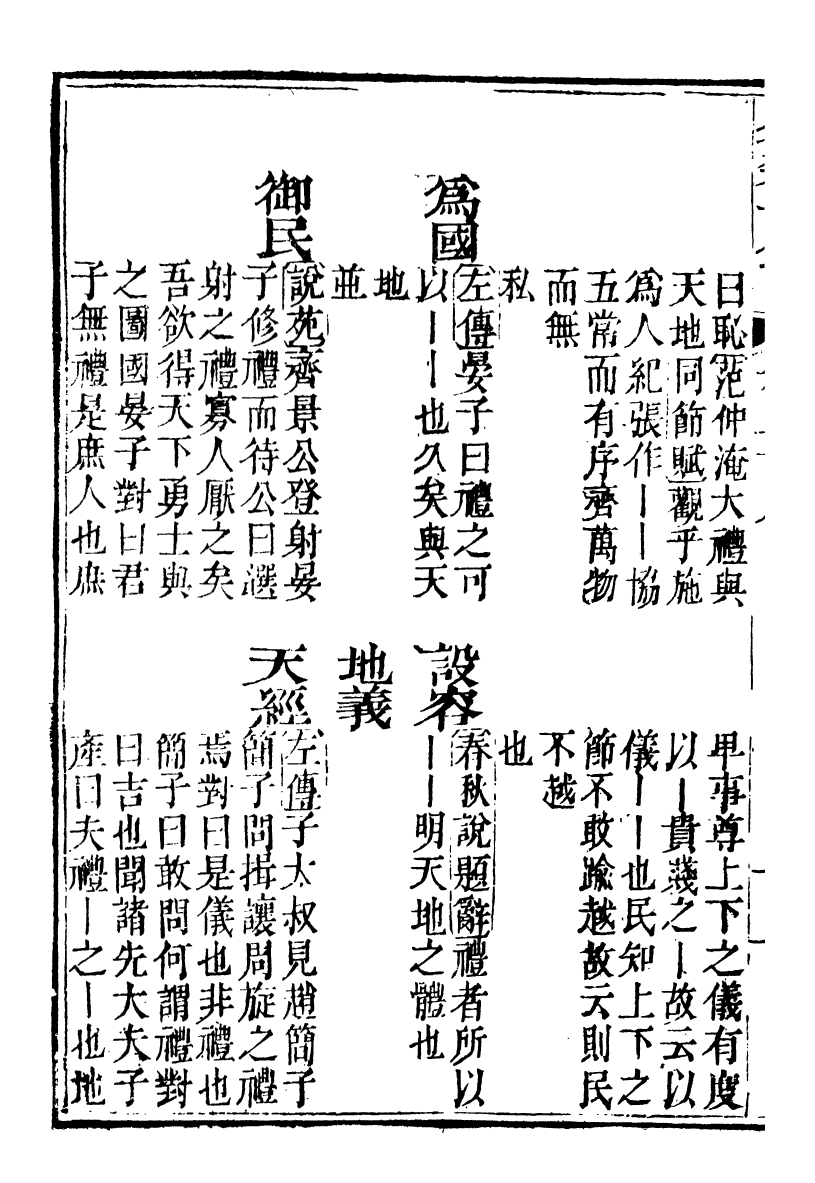 曰恥范仲淹大禮與
天地同節賦觀乎施
爲人紀張作丨丨協
五常而有序齊萬物
而無
私
爲國
左傳晏子曰禮之可
以丨丨也久矣與天
地
並
御民
說苑齊景公登射晏
子修禮而待公曰選
射之禮寡人厭之矣
吾欲得天下勇士與
之圖國晏子對曰君
子無禮是庶人也庶
卑事尊上下之儀有度
以丨貴賤之丨故云以
儀丨丨也民知上下之
節不敢踰越故云則民
不越
也
設容
春秋說題辭禮者所以
丨丨明天地之體也
地義
天經
左傳子太叔見趙簡子
簡子問揖讓周旋之禮
焉對曰是儀也非禮也
簡子曰敢問何謂禮對
曰吉也聞諸先大夫子
產曰夫禮丨之丨也地